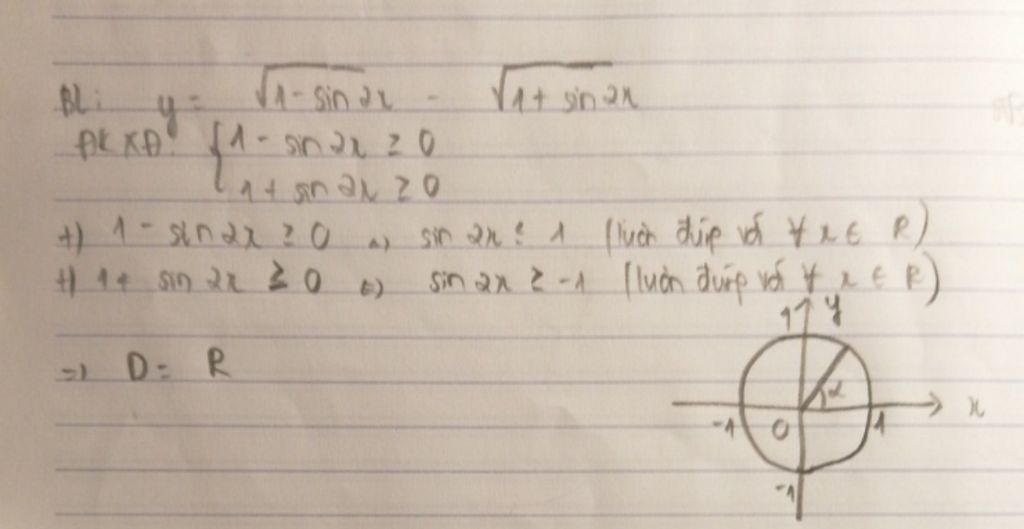 BL: y = √1 - sin 2x - √1 + sin 2x
ĐKXĐ: { 1 - sin 2x ≥ 0
1 + sin 2x ≥ 0
+) 1 - sin 2x ≥ 0 <=> sin 2x ≤ 1 (luôn đúng với ∀ x ∈ R)
+) 1 + sin 2x ≥ 0 <=> sin 2x ≥ -1 (luôn đúng với ∀ x ∈ R)
1 y
=> D = R
α
-1 0 1 x
-1